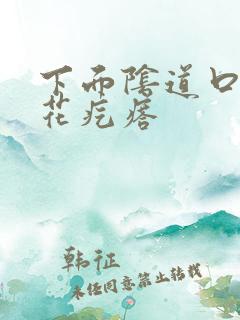 下面陰道口
花疙瘩
韩征
未经同意禁止转载